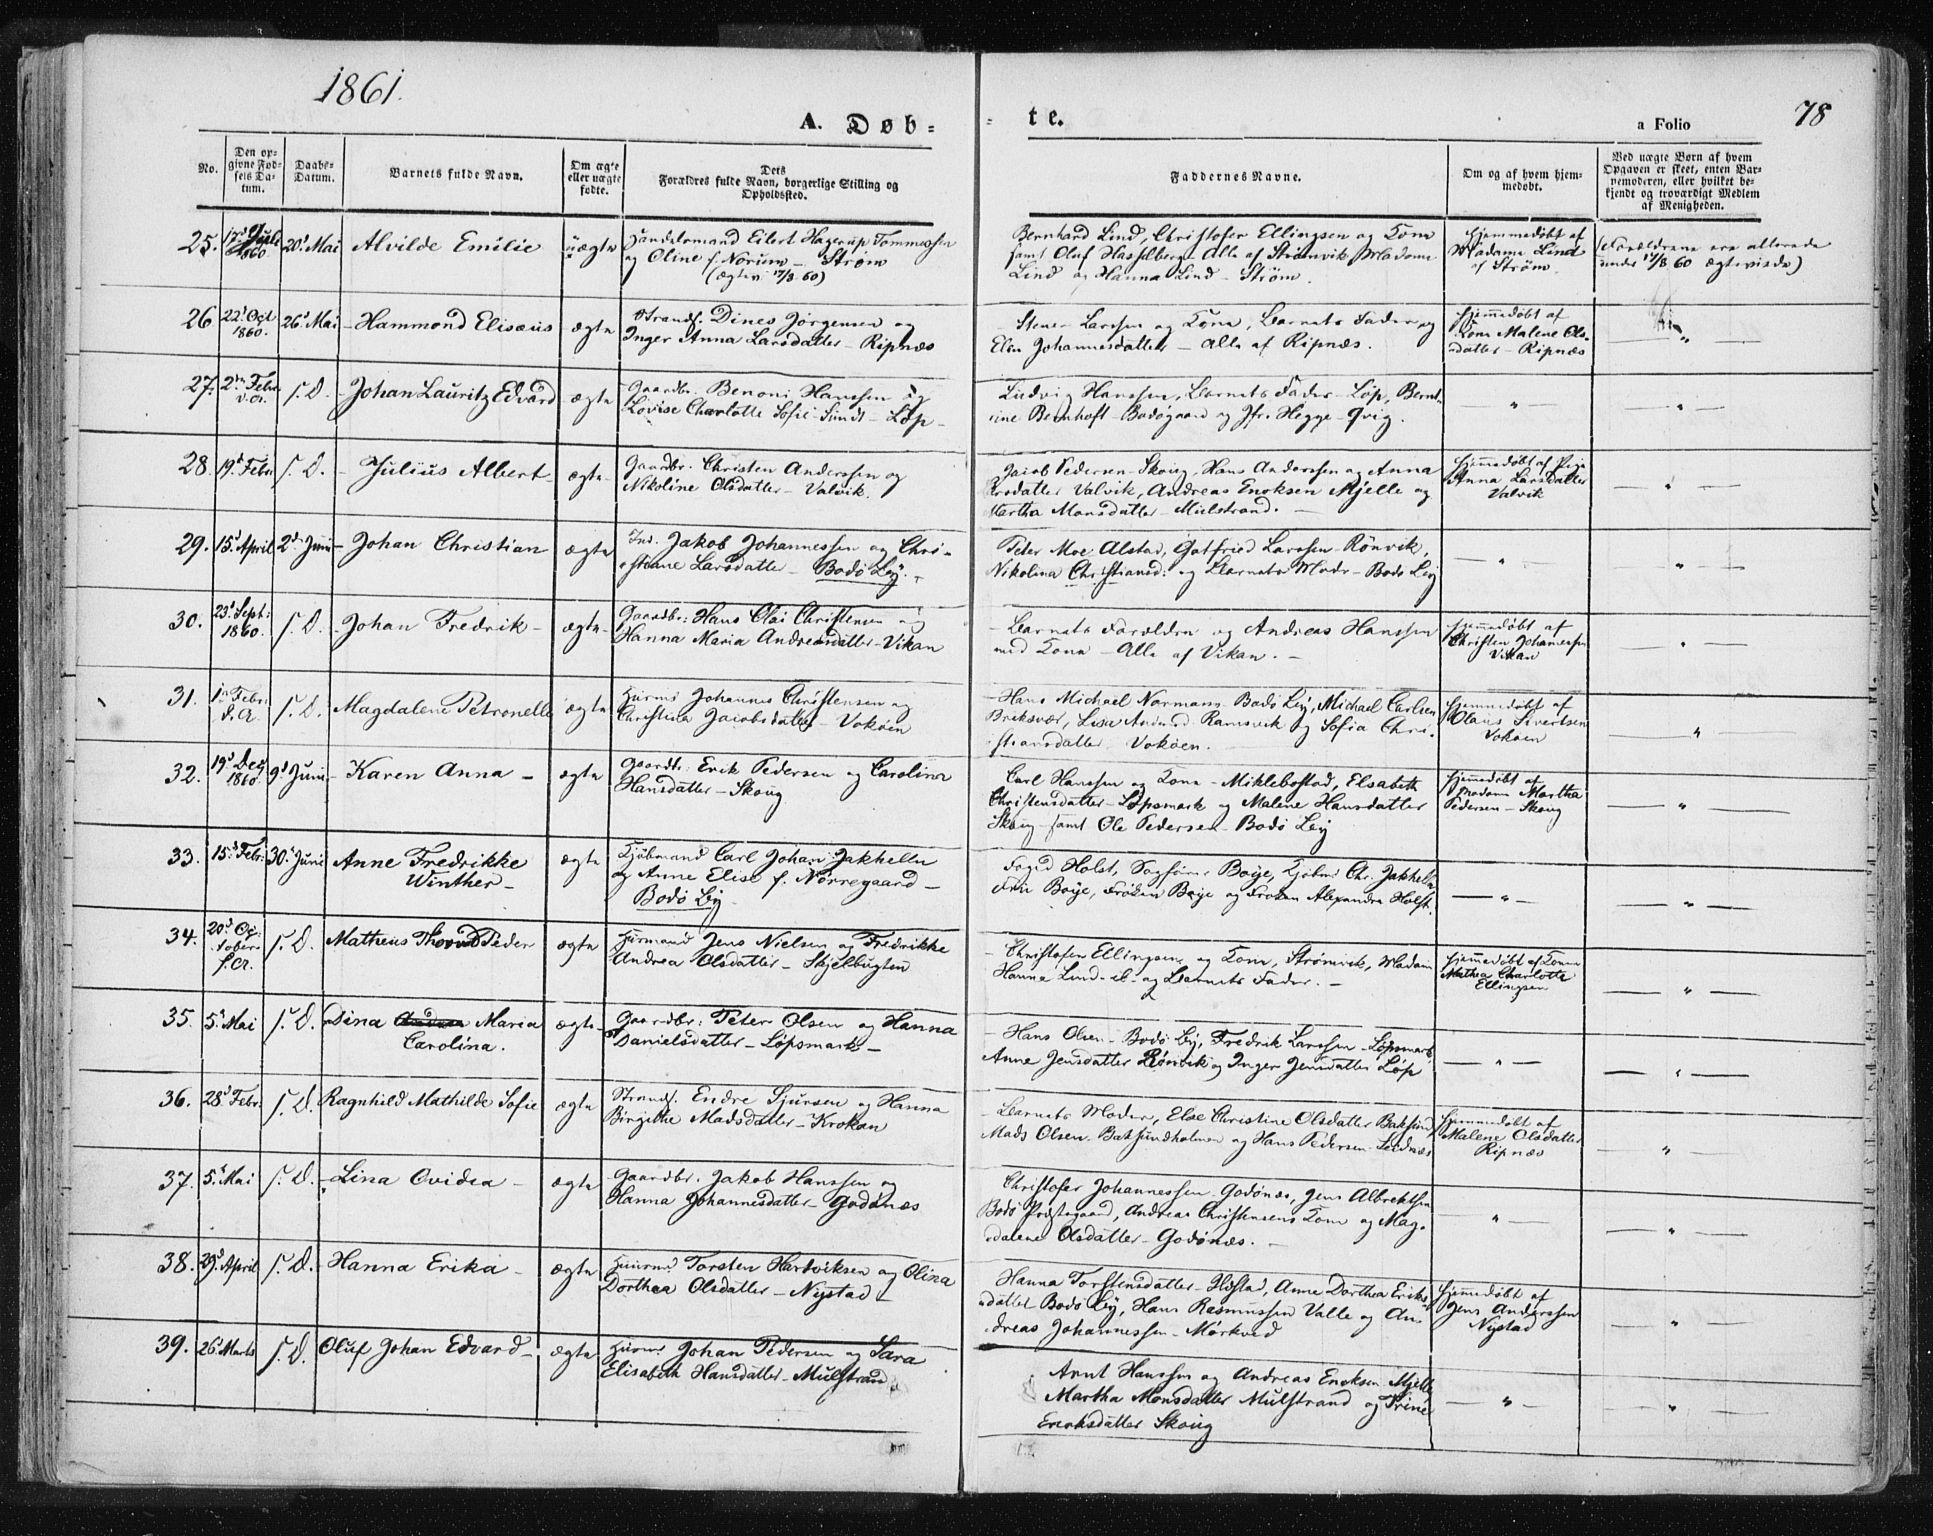 1861.
A. Døb-
te.
a Folio
78
No.
Den opgivne Fødsels Datum.
Daabs-Datum.
Barnets fulde Navn.
Om ægte eller uægte fødte.
Dets Forældres fulde Navn, borgerlige Stilling og Opholdssted.
Faddernes Navne.
Om og af hvem hjemmedøbt.
Ved uægte Børn af hvem Opgaven er skeet, enten Barnemoderen, eller hvilket bekjendt og troværdigt Medlem af Menigheden.
25. 17d Juli 1860. 20d Mai Alvilde Emilie uægte Handelsmand Eilert Hagerup Tommessen
og Oline f. Norum - Strøm
(ægtev. 17/8 60)
Bernhard Lind, Christofer Ellingsen og Kone
samt Oluf Hasselberg - Alle af Strømvik, Madame
Lind og Hanna Lind - Strøm.
Hjemmedøbt af
Madame Lind
af Strøm.
(Forældrene ere allerede
under 17/8 60 ægteviede)
26 22d Oct 1860. 26d Mai - Hammond Elisæus ægte Strands. Dines Jørgensen og
Inger Anna Larsdatter - Ripnæs
Larssen og Kone, Barnets Fader og
Elen Johannesdatter - Alle af Ripnæs.
Hjemmedøbt af
Kone Malene Ols-
datter - Ripnæs
— " —
27. 2den Febr. s. D. - Johan Lauritz Edvard ægte Gaardbr. Benoni Hanssen og
Lovise Charlotte Sofie Sundt - Løp -
Ludvig Hanssen, Barnets Fader - Løp, Bernt-
ine Bernhoft - Bodøgaard og Jfr. Hegge - Qvig.
— " —
— " —
28. 19d Febr. s. D. - Julius Albert ægte - Gaardbr. Christen Anderssen og
Nikoline Olsdatter - Valvik.
Jacob Pedersen - Skoug, Hans Anderssen og Anna
Larsdatter Valvik, Andreas Enoksen Mjelle og
Martha Monsdatter - Mulstrand. -
Hjemmedøbt af Pige
Anna Larsdatter
Valvik
— " —
29. 15d April 2d Juni - Johan Christian ægte Ind. Jakob Johannessen og Chri-
stiane Larsdatter - Bodø By.
Peter Moe Alstad, Gotfried Larssen - Rønvik,
Nikolina Christiansd: og Barnets Moder - Bodø By
— " —
— " —
30. 23d Sept: 1860. s. D. Johan Fredrik - ægte - Gaardbr: Hans Olai Christensen og
Hanna Maria Andreasdatter - Vikan
- Barnets Forældre og Andreas Hanssen
med Kone - Alle af Vikan. -
Hjemmedøbt af
Christen Johannessen
Vikan
— " —
31. 1n Febr: s. A. s. D. Magdalene Petronelle ægte Huusm. Johannes Christensen og
Christina Jacobsdatter - Vokøen
Hans Michael Normann Bodø By, Michael Carlsen
Briksvær, Lisa Andersd. Ramsvik og Sofia Chri-
stiansdatter Vokøen.
Hjemmedøbt af
Olaus Sivertsen
Vokøen
— " —
32. 19d Dec 1860. 9d Juni - Karen Anna - ægte Gaardbr: Erik Pedersen og Carolina
Hansdatter - Skoug
Carl Hanssen og Kone - Miklebostad, Elsabeth
Christensdatter - Løpsmark og Malene Hansdatter
Skoug samt Ole Pedersen - Bodø By
Hjemmedøbt af
Madame Martha
Pedersen - Skoug
— " —
33. 15d Febr: 30d Juni Anne Fredrikke
Winther - ægte Kjøbmand Carl Johan Jakhelln
og Anne Elise f. Nørregaard -
Bodø By -
Foged Holst, Sagfører Boije, Kjøbm: Chr. Jakhelln
Fru Boije, Frøken Boije og Frøken Alexandra Holst.
— " —
— " —
34. 20d October s. A. s. D. Matheus Thorvald Peder ægte Huusmand Jens Nielsen og Fredrikke
Andrea Olsdatter - Skjelbugten
- Christofer Ellingsen og Kone, Strømvik, Madam
Hanne Lind - og Barnets Fader. -
Hjemmedøbt af Kone
Mathea Charlotte
Ellingsen
— " —
35. 5d Mai s. D. Dina Maria
Carolina. ægte - Gaardbr: Peter Olsen og Hanna
Danielsdatter - Løpsmark -
- Hans Olsen - Bodø By, Fredrik Larssen - Løpsmark
Anne Jensdatter Rønvik og Inger Jensdatter Løp
— " —
— " —
36. 28d Febr: s. D. Ragnhild Mathilde Sofie ægte Strands. Endre Sjursen og Hanna
Birgithe Madsdatter - Krokan
- Barnets Moder, Else Christine Olsdatter Baksund
Mads Olsen - Baksundholmen og Hans Pedersen -
Hjemmedøbt af
Malene Olsdatter
Ripnæs
— " —
37. 5d Mai s. D. - Lina Ovidia - ægte Gaardbr. Jakob Hanssen og
Hanna Johannesdatter - Godønæs
Christofer Johannessen - Godønæs, Jens Albrektsen
Bodø Præstegaard, Andreas Christensens Kone og Mag-
dalene Olsdatter - Godønæs. -
— " —
— " —
38. 29d April s. D. - Hanna Erika - ægte Huusm. Torsten Hartviksen og Olina
Dorthea Olsdatter - Nystad -
Hanna Torstensdatter - Anne Dorthea Eriks-
datter Bodø By, Hans Rasmussen Valle og An-
dreas Johannessen - Mørkved
Hjemmedøbt af
Jens Anderssen
Nystad
— " —
39. 26d Marts s. D. Oluf Johan Edvard - ægte Huusm: Johan Pedersen og Sara
Elisabeth Hansdatter - Mulstrand
Arnt Hanssen og Andreas Enoksen Mjelle
Martha Monsdatter Mulstrand og Trine
Enoksdatter Skoug
— " —
— " —